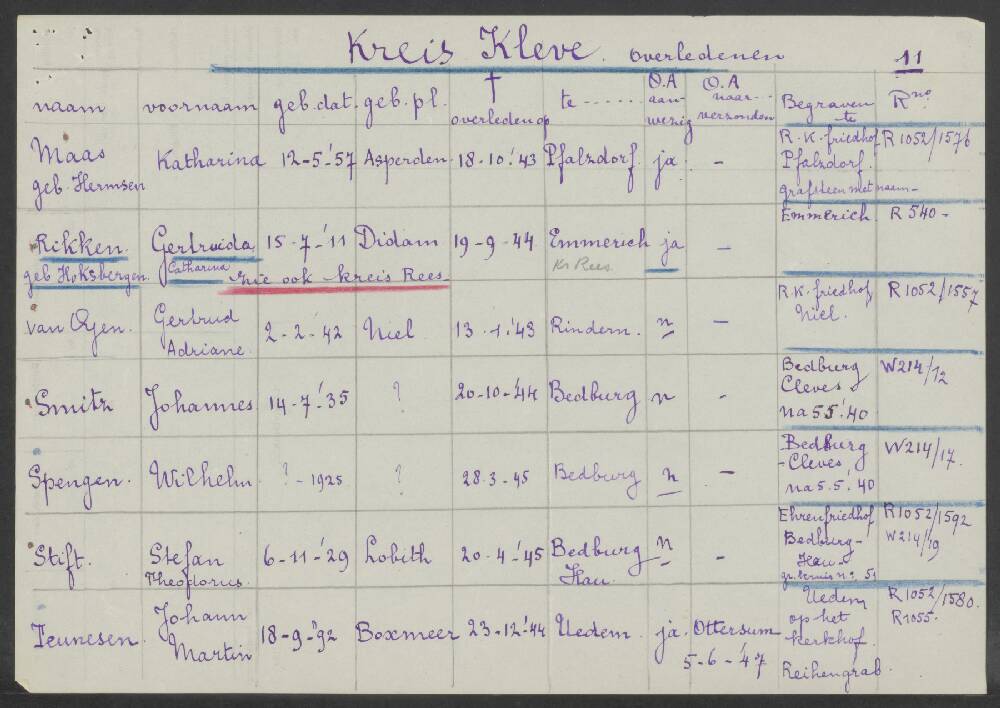 Kreis Kleve. overledenen 11
naam voornaam geb. dat. geb. pl. † overleden op te ...... O.A aanwezig O.A naar... verzonden Begraven te Rno.
Maas geb. Hermsen Katharina 12-5-'57 Asperden 18-10-'43 Pfalzdorf ja - R.K. friedhof Pfalzdorf. grafsteen met naam- R 1052/1576
Rikken. geb. Hoksbergen. Gertruida Catharina 15-7-'11 Didam 19-9-44 Emmerich Kr. Rees. ja - Emmerich R 540-
zie ook kreis Rees
van Oyen. Gertrud Adriane. 2-2-'42 Niel 13-1-'43 Rindern. n - R.K. friedhof Niel. R 1052/1557
Smitz Johannes 14-7-'35 ? 20-10-'44 Bedburg n - Bedburg Cleves na 5 5.'40 W214/12
Spengen. Wilhelm ? - 1925 ? 28.3-45 Bedburg n - Bedburg -Cleves na 5.5.'40 W214/17.
Stift. Stefan Theodorus. 6-11-'29 Lobith 20-4-'45 Bedburg Hau n - Ehrenfriedhof Bedburg- Hau- gr. kruis no. 51 R1052/1592 W214/19
Teunesen. Johann Martin 18-9-'92 Boxmeer 23-12-'44 Uedem. ja. Ottersum 5-6-'47 Uedem op het kerkhof. Reihengrab. R1052/1580. R1055.